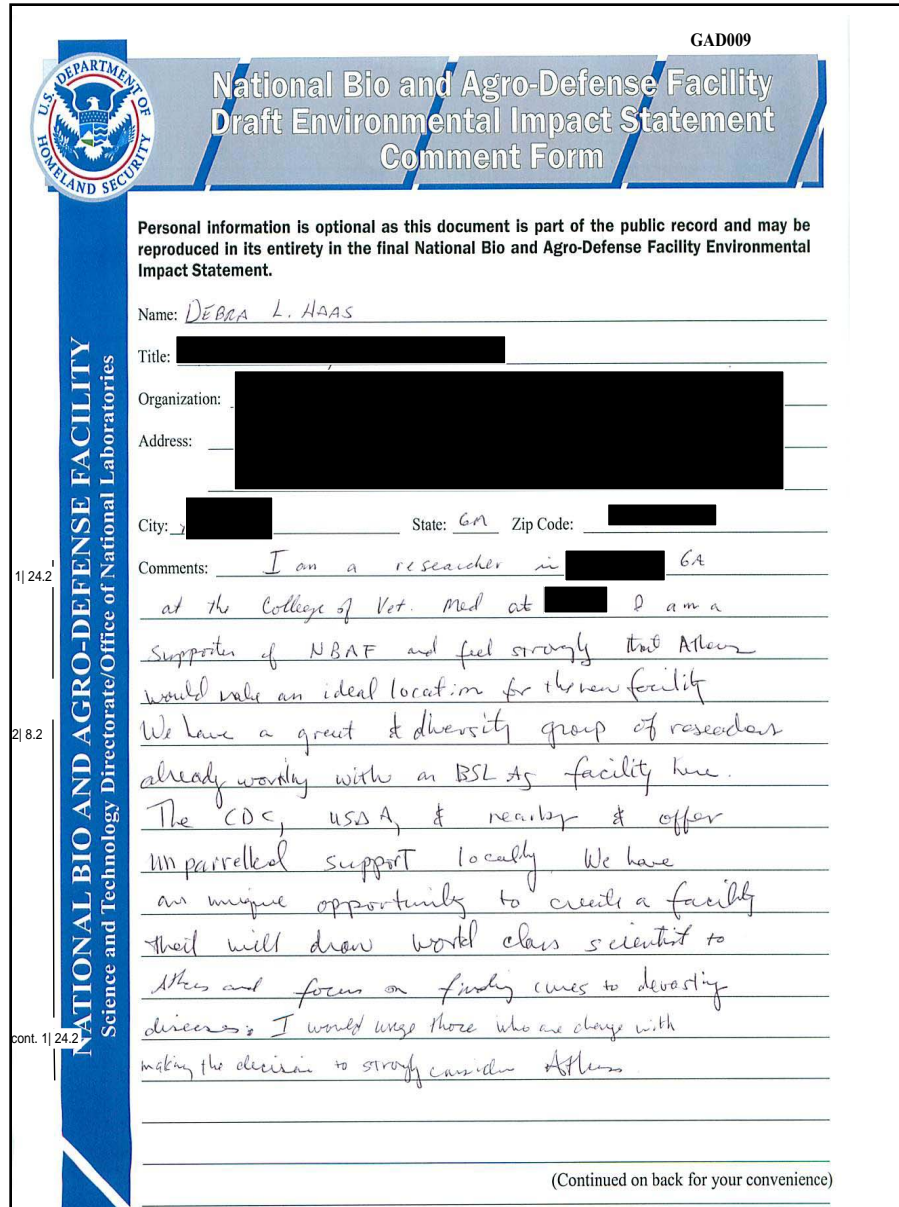 GAD009
U.S. DEPARTMENT OF HOMELAND SECURITY
National Bio and Agro-Defense Facility
Draft Environmental Impact Statement
Comment Form
Personal information is optional as this document is part of the public record and may be
reproduced in its entirety in the final National Bio and Agro-Defense Facility Environmental
Impact Statement.
Name: DEBRA L. HAAS
Title:
Organization:
Address:
City: State: GA Zip Code:
1| 24.2
Comments: I am a researcher in GA
at the College of Vet. Med at I am a
supporter of NBAF and feel strongly that Athens
would make an ideal location for the new facility
2| 8.2
We have a great & diversity group of researchers
already working with an BSL Ag facility here.
The CDC, USDA, & nearby & offer
unparrelled support locally We have
an unique opportunity to create a facility
that will draw world class scientist to
Athens and focus on finding cures to devasting
diseases. I would urge those who are charge with
cont. 1| 24.2
making the decision to strongly consider Athens
(Continued on back for your convenience)
NATIONAL BIO AND AGRO-DEFENSE FACILITY
Science and Technology Directorate/Office of National Laboratories